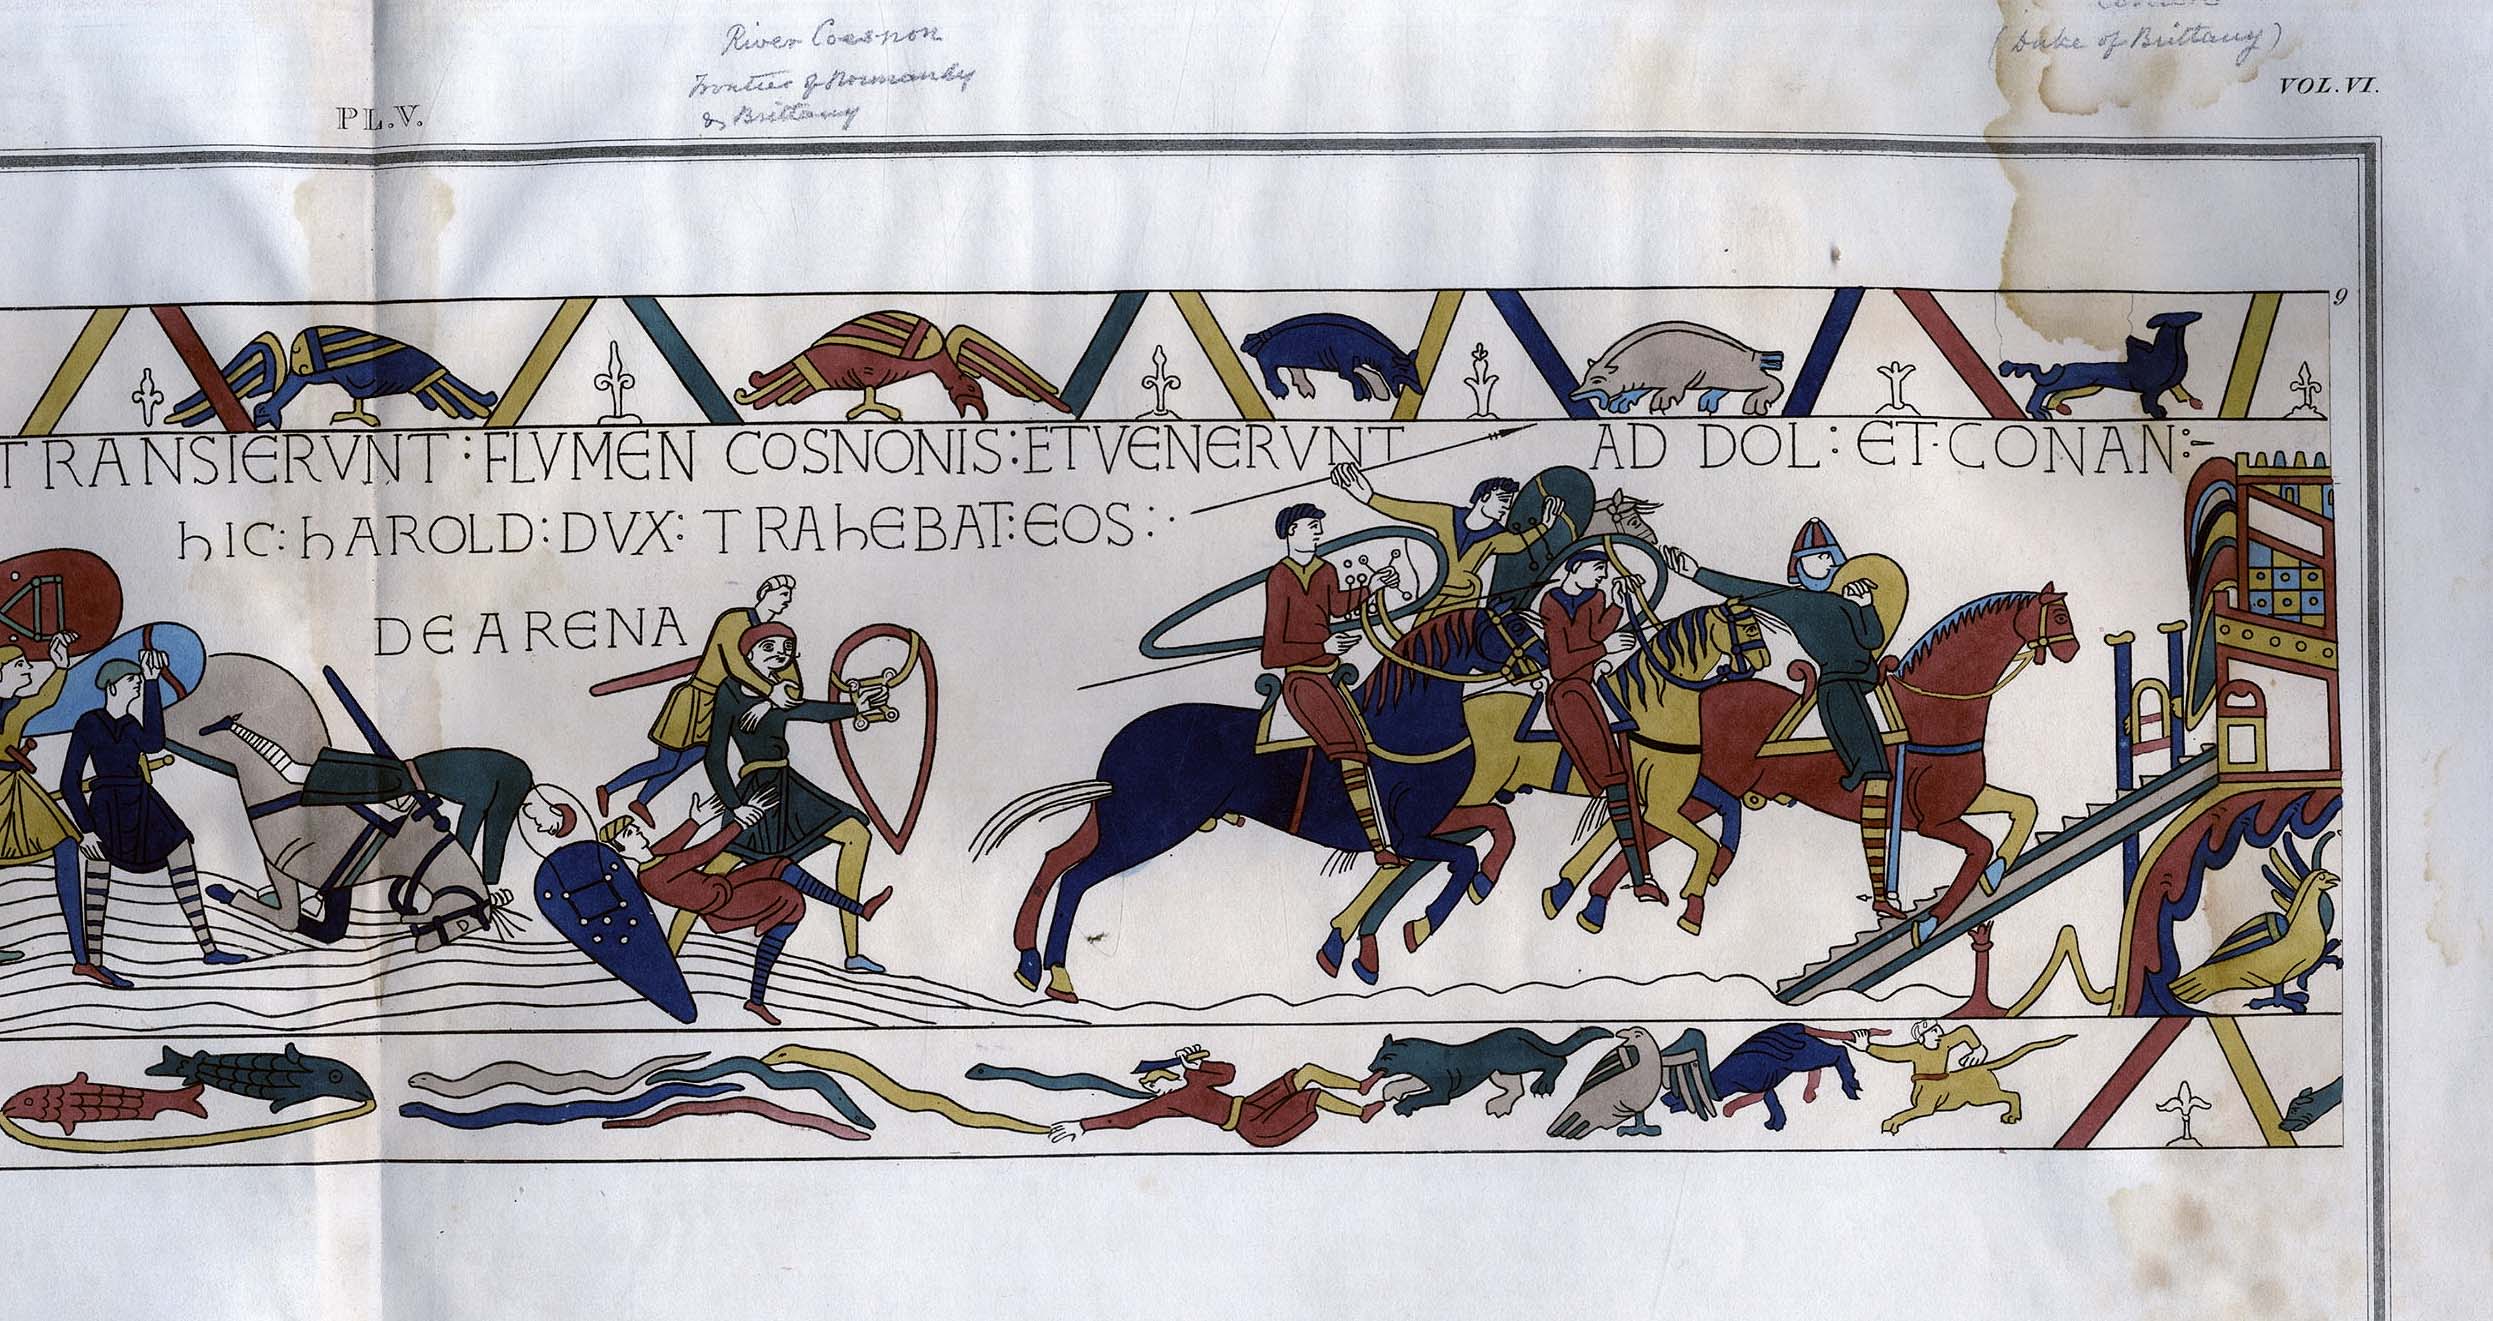 River Coesnon
(Duke of Brittany)
Frontier of Normandy
& Brittany
VOL. VI.
PL. V.
9
TRANSIERVNT : FLVMEN COSNONIS : ET VENERVNT AD DOL : ET · CONAN :-
hIC : hAROLD : DVX : TRAhEBAT : EOS :·
DE ARENA